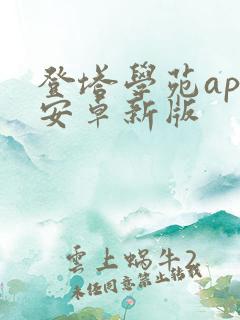 登塔學苑ap
安卓新版
雲上蝸牛2
未经同意禁止转载